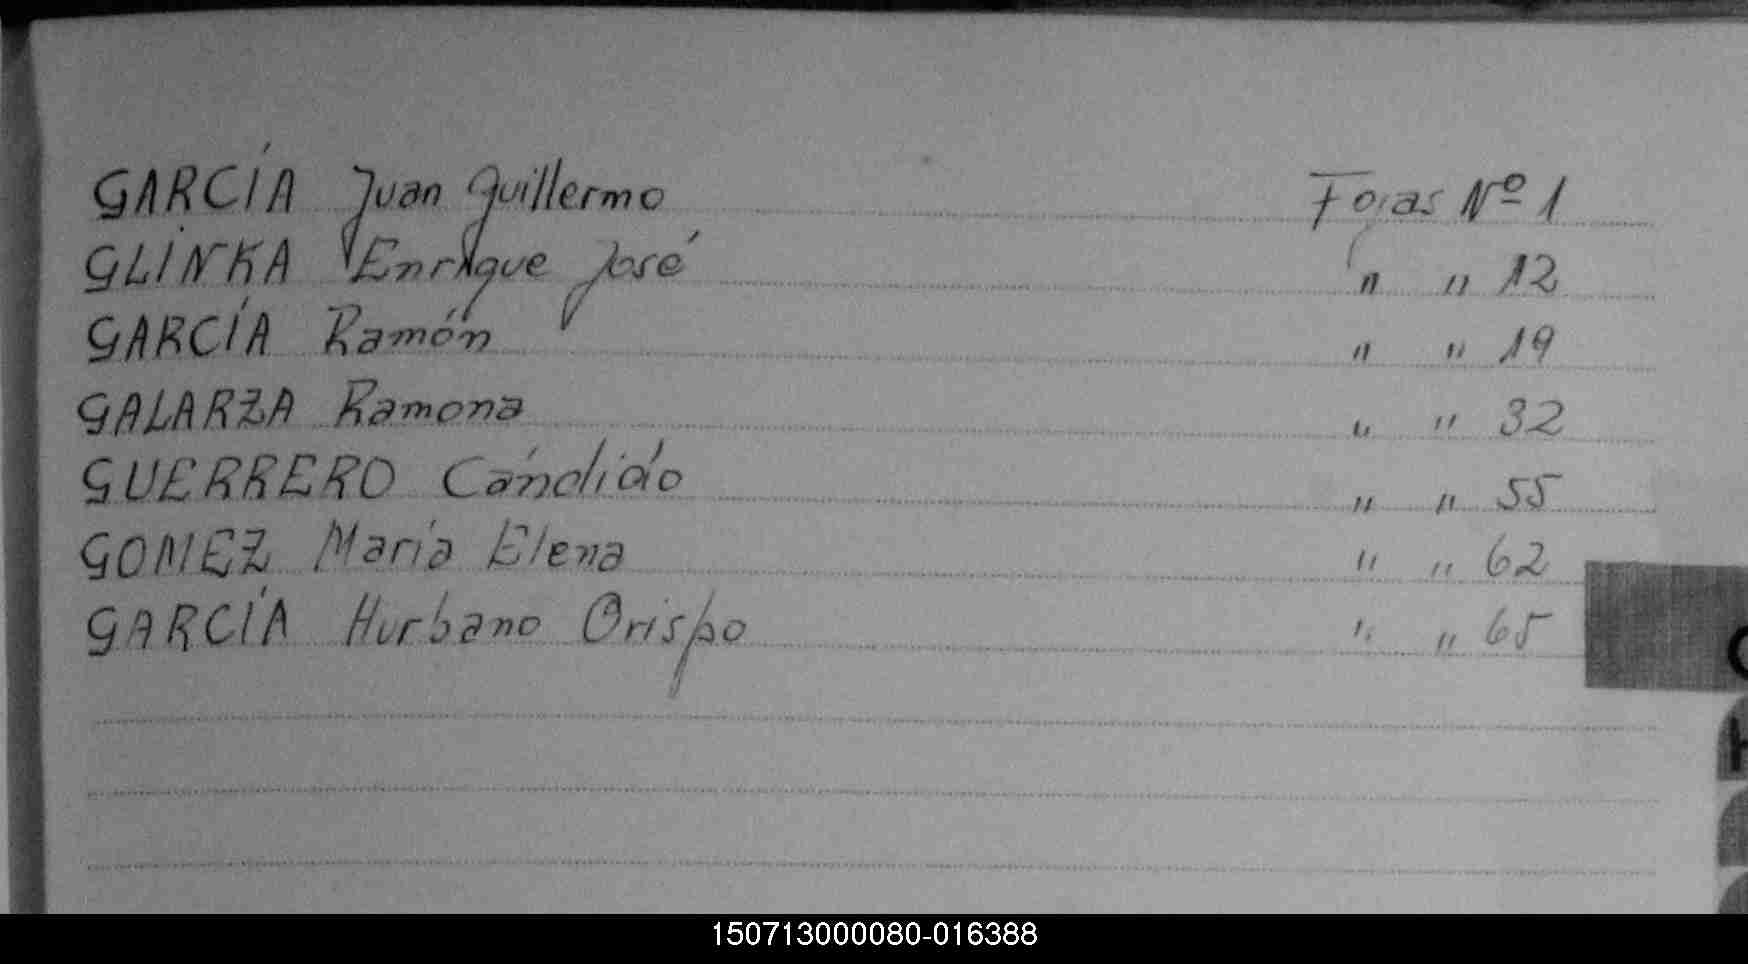 GARCÍA Juan Guillermo Fojas Nº 1
GLINKA Enrique José " " 12
GARCÍA Ramón " " 19
GALARZA Ramona " " 32
GUERRERO Cándido " " 55
GOMEZ María Elena " " 62
GARCÍA Hurbano Orispo " " 65
150713000080-016388